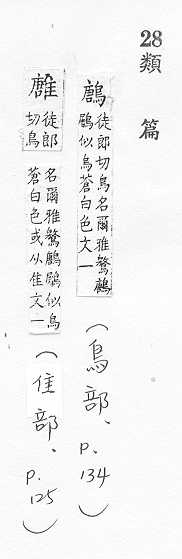 28
類篇
鶶
徒郎切鳥名爾雅鷵鶶
鶶似烏蒼白色文一
(鳥部、p.134)
徒郎切鳥
名爾雅鷵鶶鶶似烏
蒼白色或从隹文一
(隹部、p.125)